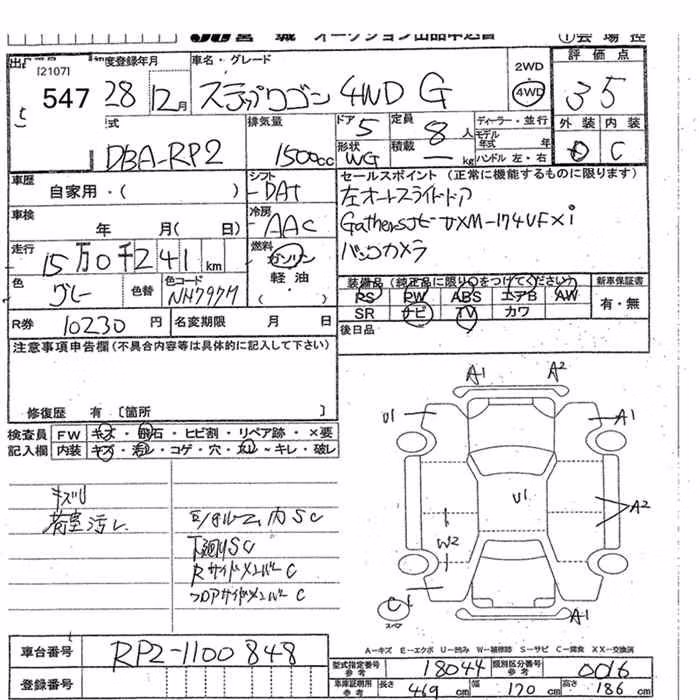 JU宮城 オークション出品申込書 ①会場控
[2107]
547
初度登録年月
28 12月
車名・グレード
ステップワゴン 4WD G
2WD
4WD
評価点
35
外装 内装
C
型式
DBA-RP2
排気量
1500cc
ドア 5
定員 8人
形状 WG
積載 ー kg
ディーラー・並行
モデル年式 年
ハンドル 左・右
車歴
自家用・( )
シフト
DAT
セールスポイント (正常に機能するものに限ります)
左オートスライドドア
Gathersナビ VXM-174VFXi
バックカメラ
車検
年 月( 日)
冷房
AAC
走行
15万0千241km
燃料
ガソリン
軽油
( ・ )
色
グレー
色替
色コード
NH797M
装備品(純正品に限り○をつけてください)
PS PW ABS エアB AW
SR ナビ TV カワ
新車保証書
有・無
R券 10230円
名変期限 月 日
後日品
注意事項申告欄(不具合内容等は具体的に記入して下さい)
修復歴 有 〔箇所 〕
検査員記入欄
FW キズ・飛石・ヒビ割・リペア跡・×要
内装 キズ・汚レ・コゲ・穴・スレ・キレ・破レ
キズU
荷室汚レ
下廻りSC
RサイドメンバーC
フロアサイドメンバーC
A1 A2
U1 A1
U1
A2
W2
C1
スペア
A1
A-キズ E-エクボ U-凹み W-補修跡 S-サビ C-腐食 XX-交換済
車台番号
RP2-1100848
登録番号
型式指定番号参考 18044
類別区分番号参考 0016
車庫証明用参考 長さ 469cm 幅 170cm 高さ 186cm